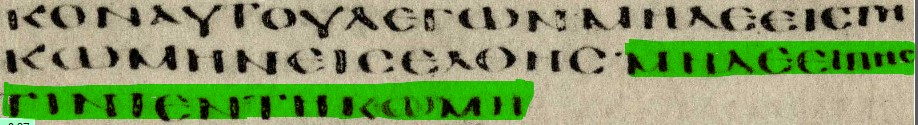 ΚΟΝΑΥΤΟΥΛΕΓΩΝ·ΜΗΔΕΕΙϹΤΗ
ΚΩΜΗΝΕΙϹΕΛΘΗϹ·ΜΗΔΕΕΙΠΗϹ
ΤΙΝΙΕΝΤΗΚΩΜΗ